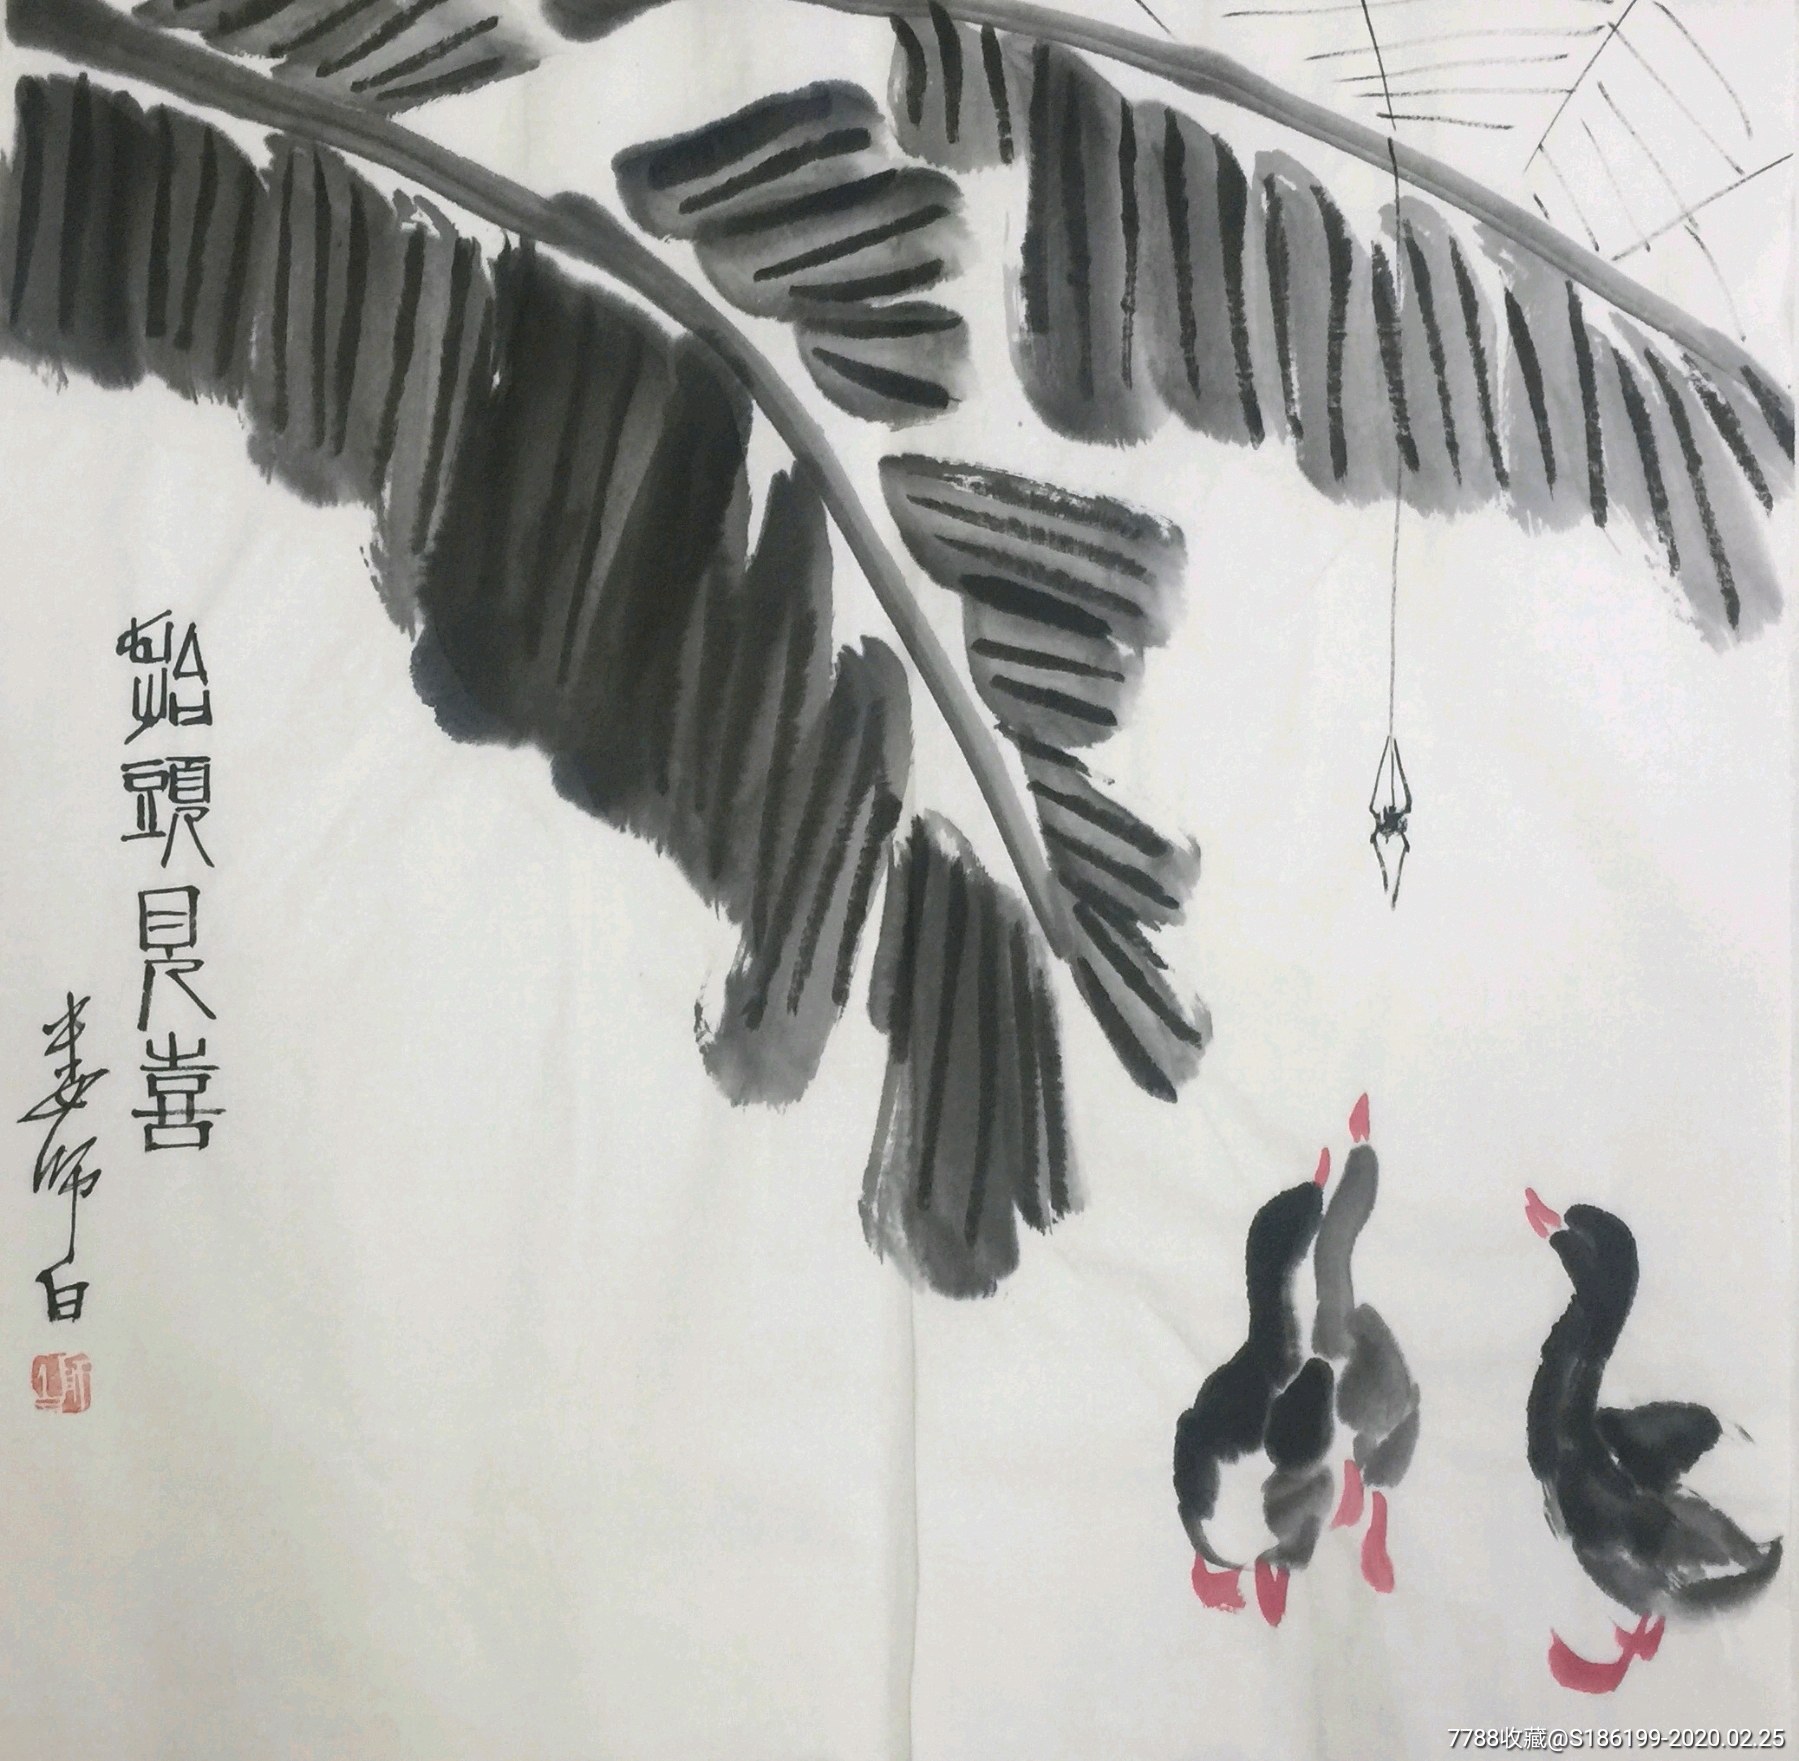 抬頭見喜
娄師白
7788收藏@S186199-2020.02.25